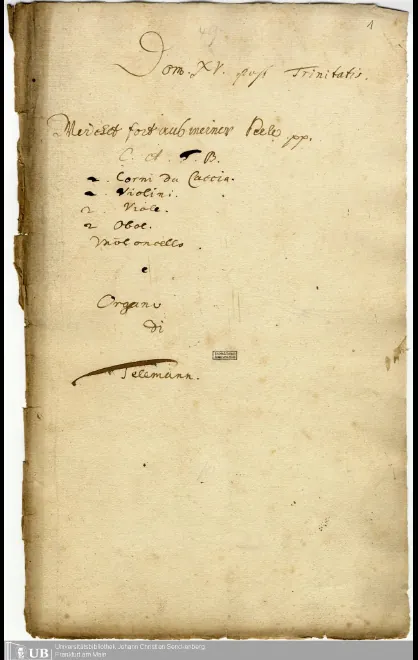 1
Dom. XV. post Trinitatis.
Weicht fort aus meiner Seele pp.
C. A. T. B.
2. Corni da Caccia.
2. Violini.
2. Viole.
2 Oboe.
Violoncello
e
Organo
di
Telemann.
UB
Universitätsbibliothek Johann Christian Senckenberg
Frankfurt am Main